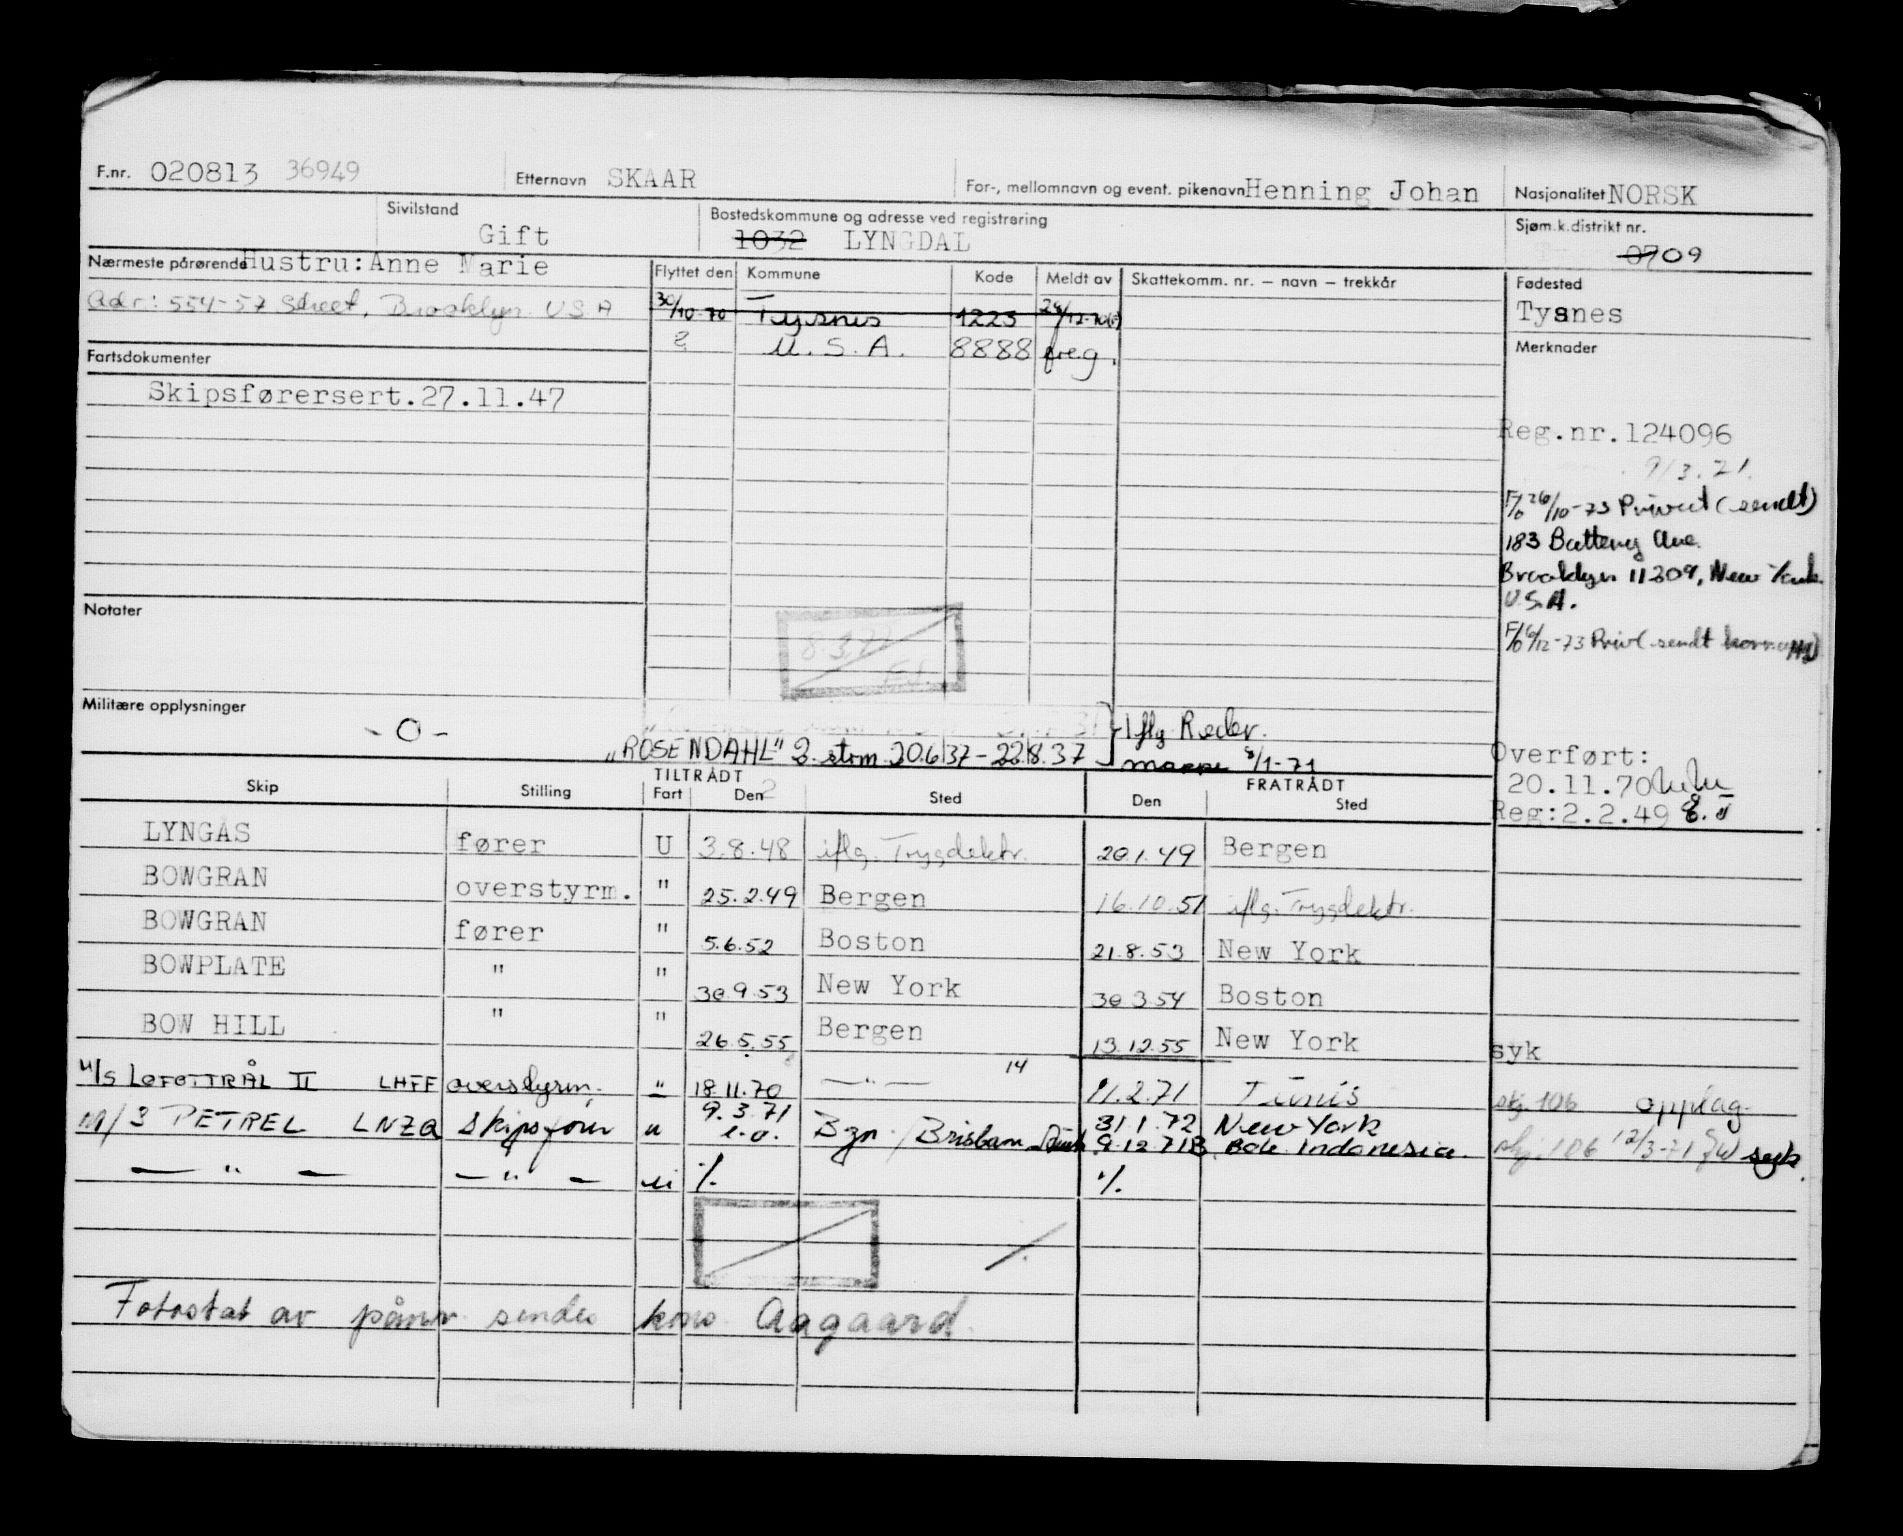 F.nr. 020813 36949 Etternavn SKAAR For-, mellomnavn og event. pikenavn Henning Johan Nasjonalitet NORSK
Sivilstand Gift Bostedskommune og adresse ved registrering 1032 LYNGDAL Sjøm.k.distrikt nr. 0709
Nærmeste pårørende Hustru: Anne Marie Flyttet den Kommune Kode Meldt av Skattekomm. nr. — navn — trekkår Fødested
Adr.: 554-57 Street, Brooklyn USA 30/10-70 Tysnes 1223 Tysnes
? U.S.A. 8888 freg. Merknader
Fartsdokumenter
Skipsførersert.27.11.47
Reg.nr.124096
9/3.71
F/o 26/10-73 Privat (sendt)
183 Battery Ave.
Brooklyn 11209, New York
U.S.A.
Notater
8.3.72
F/o 6/12-73 Priv. sendt
Militære opplysninger
- 0 -
"ROSENDAHL" 2. strm. 20.6.37-22.8.37 } Iflg Reder.
mappe 8/1-71
Overført:
20.11.70
Reg:2.2.49
TILTRÅDT FRATRÅDT
Skip Stilling Fart Den Sted Den Sted
LYNGÅS fører U 3.8.48 iflg. Trygdektr. 20.1.49 Bergen
BOWGRAN overstyrm. " 25.2.49 Bergen 16.10.51 iflg. Trygdektr.
BOWGRAN fører " 5.6.52 Boston 21.8.53 New York
BOWPLATE " " 30.9.53 New York 30.3.54 Boston
BOW HILL " " 26.5.55 Bergen 13.12.55 New York syk
M/S LOFOTTRÅL II LHFF overstyrm. " 18.11.70 — " — 14 11.2.71 Tunis skj. 106 opplag
M/S PETREL LNZQ Skipsfører " 9.3.71 Bgn. / Brisbane 31.1.72 New York
9.12.71 Indonesia. skj. 106 12/3-71 syk.
— " — — " — " ./. ./.
Fotostat av påmr. sendes kons. Aagaard.